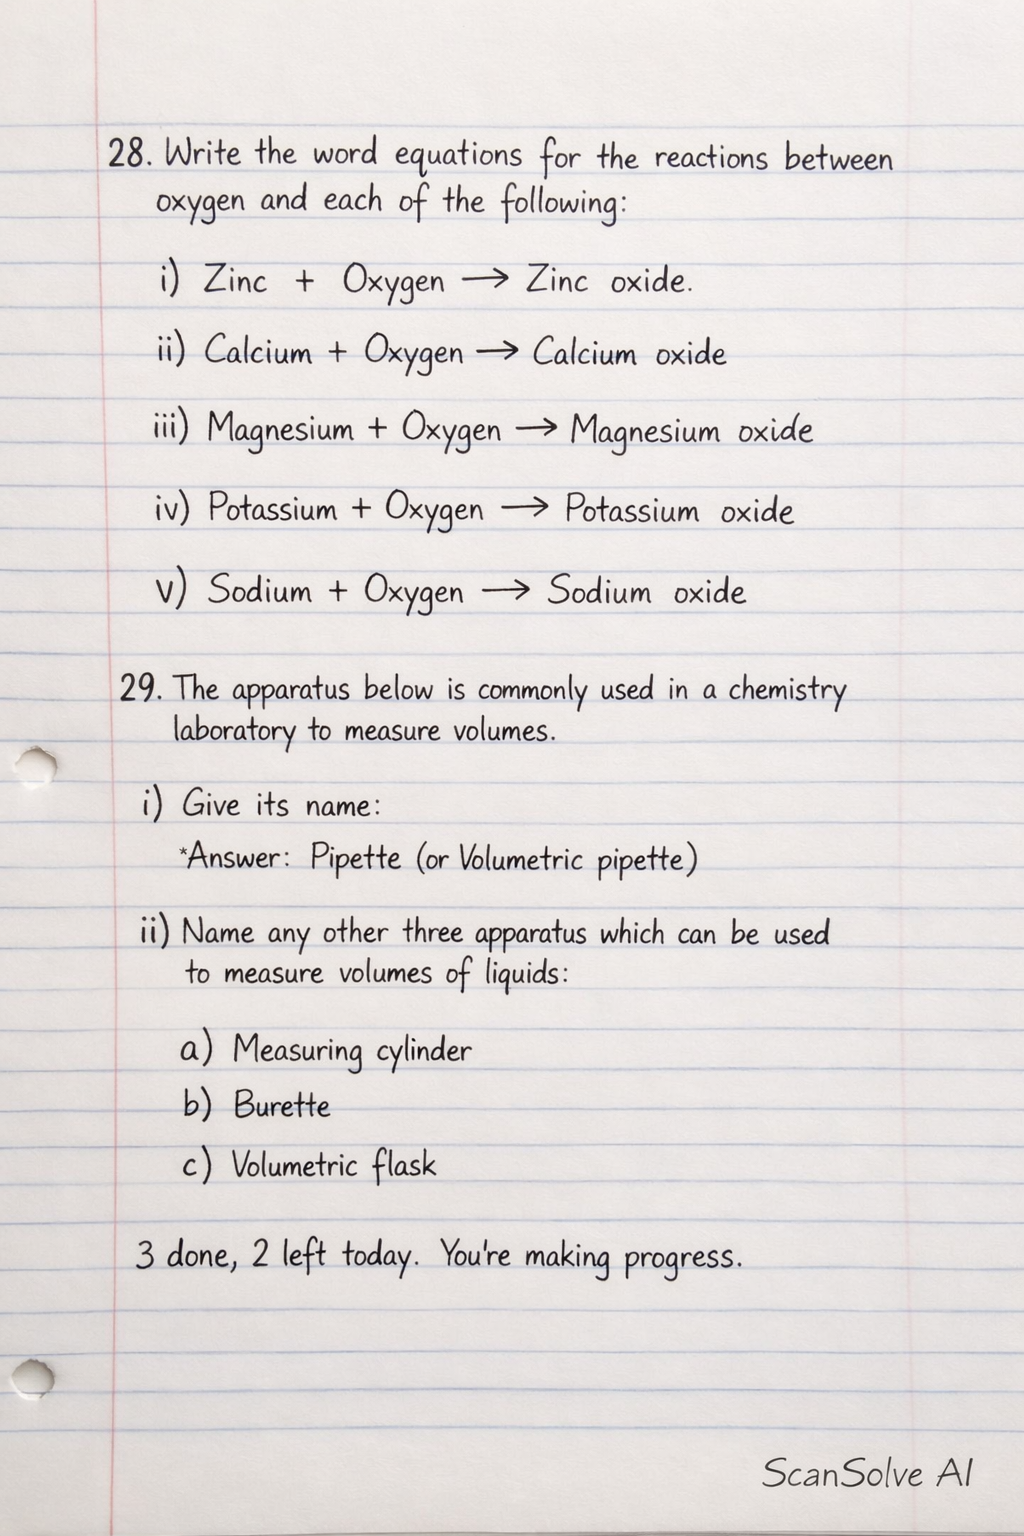 28. Write the word equations for the reactions between
oxygen and each of the following:
i) Zinc + Oxygen → Zinc oxide.
ii) Calcium + Oxygen → Calcium oxide
iii) Magnesium + Oxygen → Magnesium oxide
iv) Potassium + Oxygen → Potassium oxide
v) Sodium + Oxygen → Sodium oxide
29. The apparatus below is commonly used in a chemistry
laboratory to measure volumes.
i) Give its name:
*Answer: Pipette (or Volumetric pipette)
ii) Name any other three apparatus which can be used
to measure volumes of liquids:
a) Measuring cylinder
b) Burette
c) Volumetric flask
3 done, 2 left today. You're making progress.
ScanSolve AI